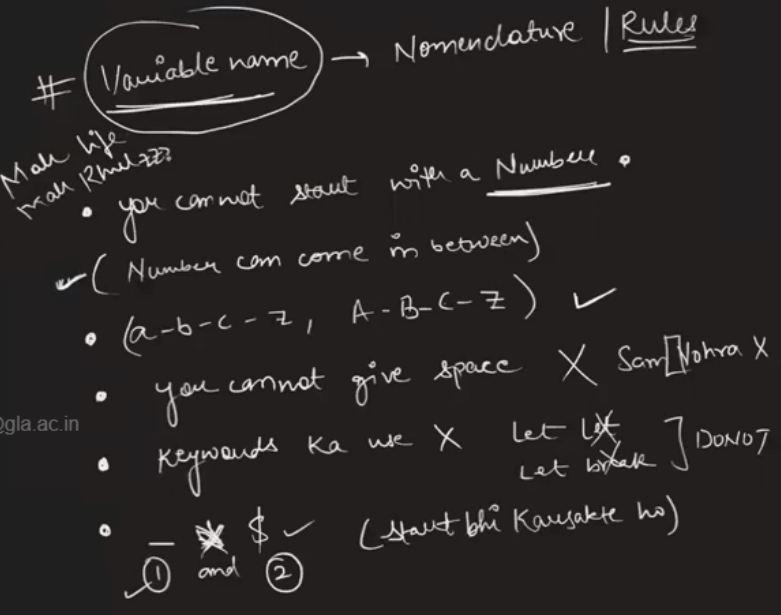 # Variable name → Nomenclature | Rules
Mat life
• you cannot start with a Number .
(Number can come in between)
• (a-b-c-z, A-B-C-Z) ✓
• you cannot give space X Sam Vohra X
@gla.ac.in
• Keywords Ka use X Let let
Let break ] DONOT
• _ $ ✓ (start bhi Karsakte ho)
✓ ① and ②